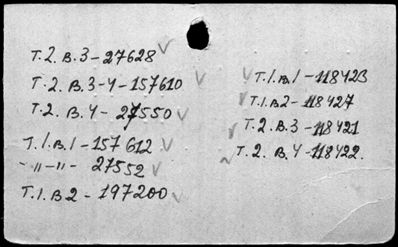 T.2.B.3-27628
T.2.B.3-4-157610
T.2.B.4-27550
T.1.B.1-157612
-"-"- 27552
T.1.B2-197200
T.1.B1-118423
T.1.B2-118427
T.2.B.3-118421
T.2.B.4-118422.